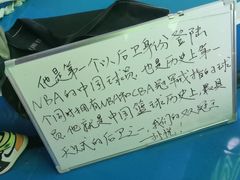 他是第一个以后卫身份登陆
NBA的中国球员,也是历史上第一
个同时拥有NBA和CBA冠军戒指的球
员,他就是中国篮球历史上,最具
天赋的后卫之一,我们的双冠王
孙悦